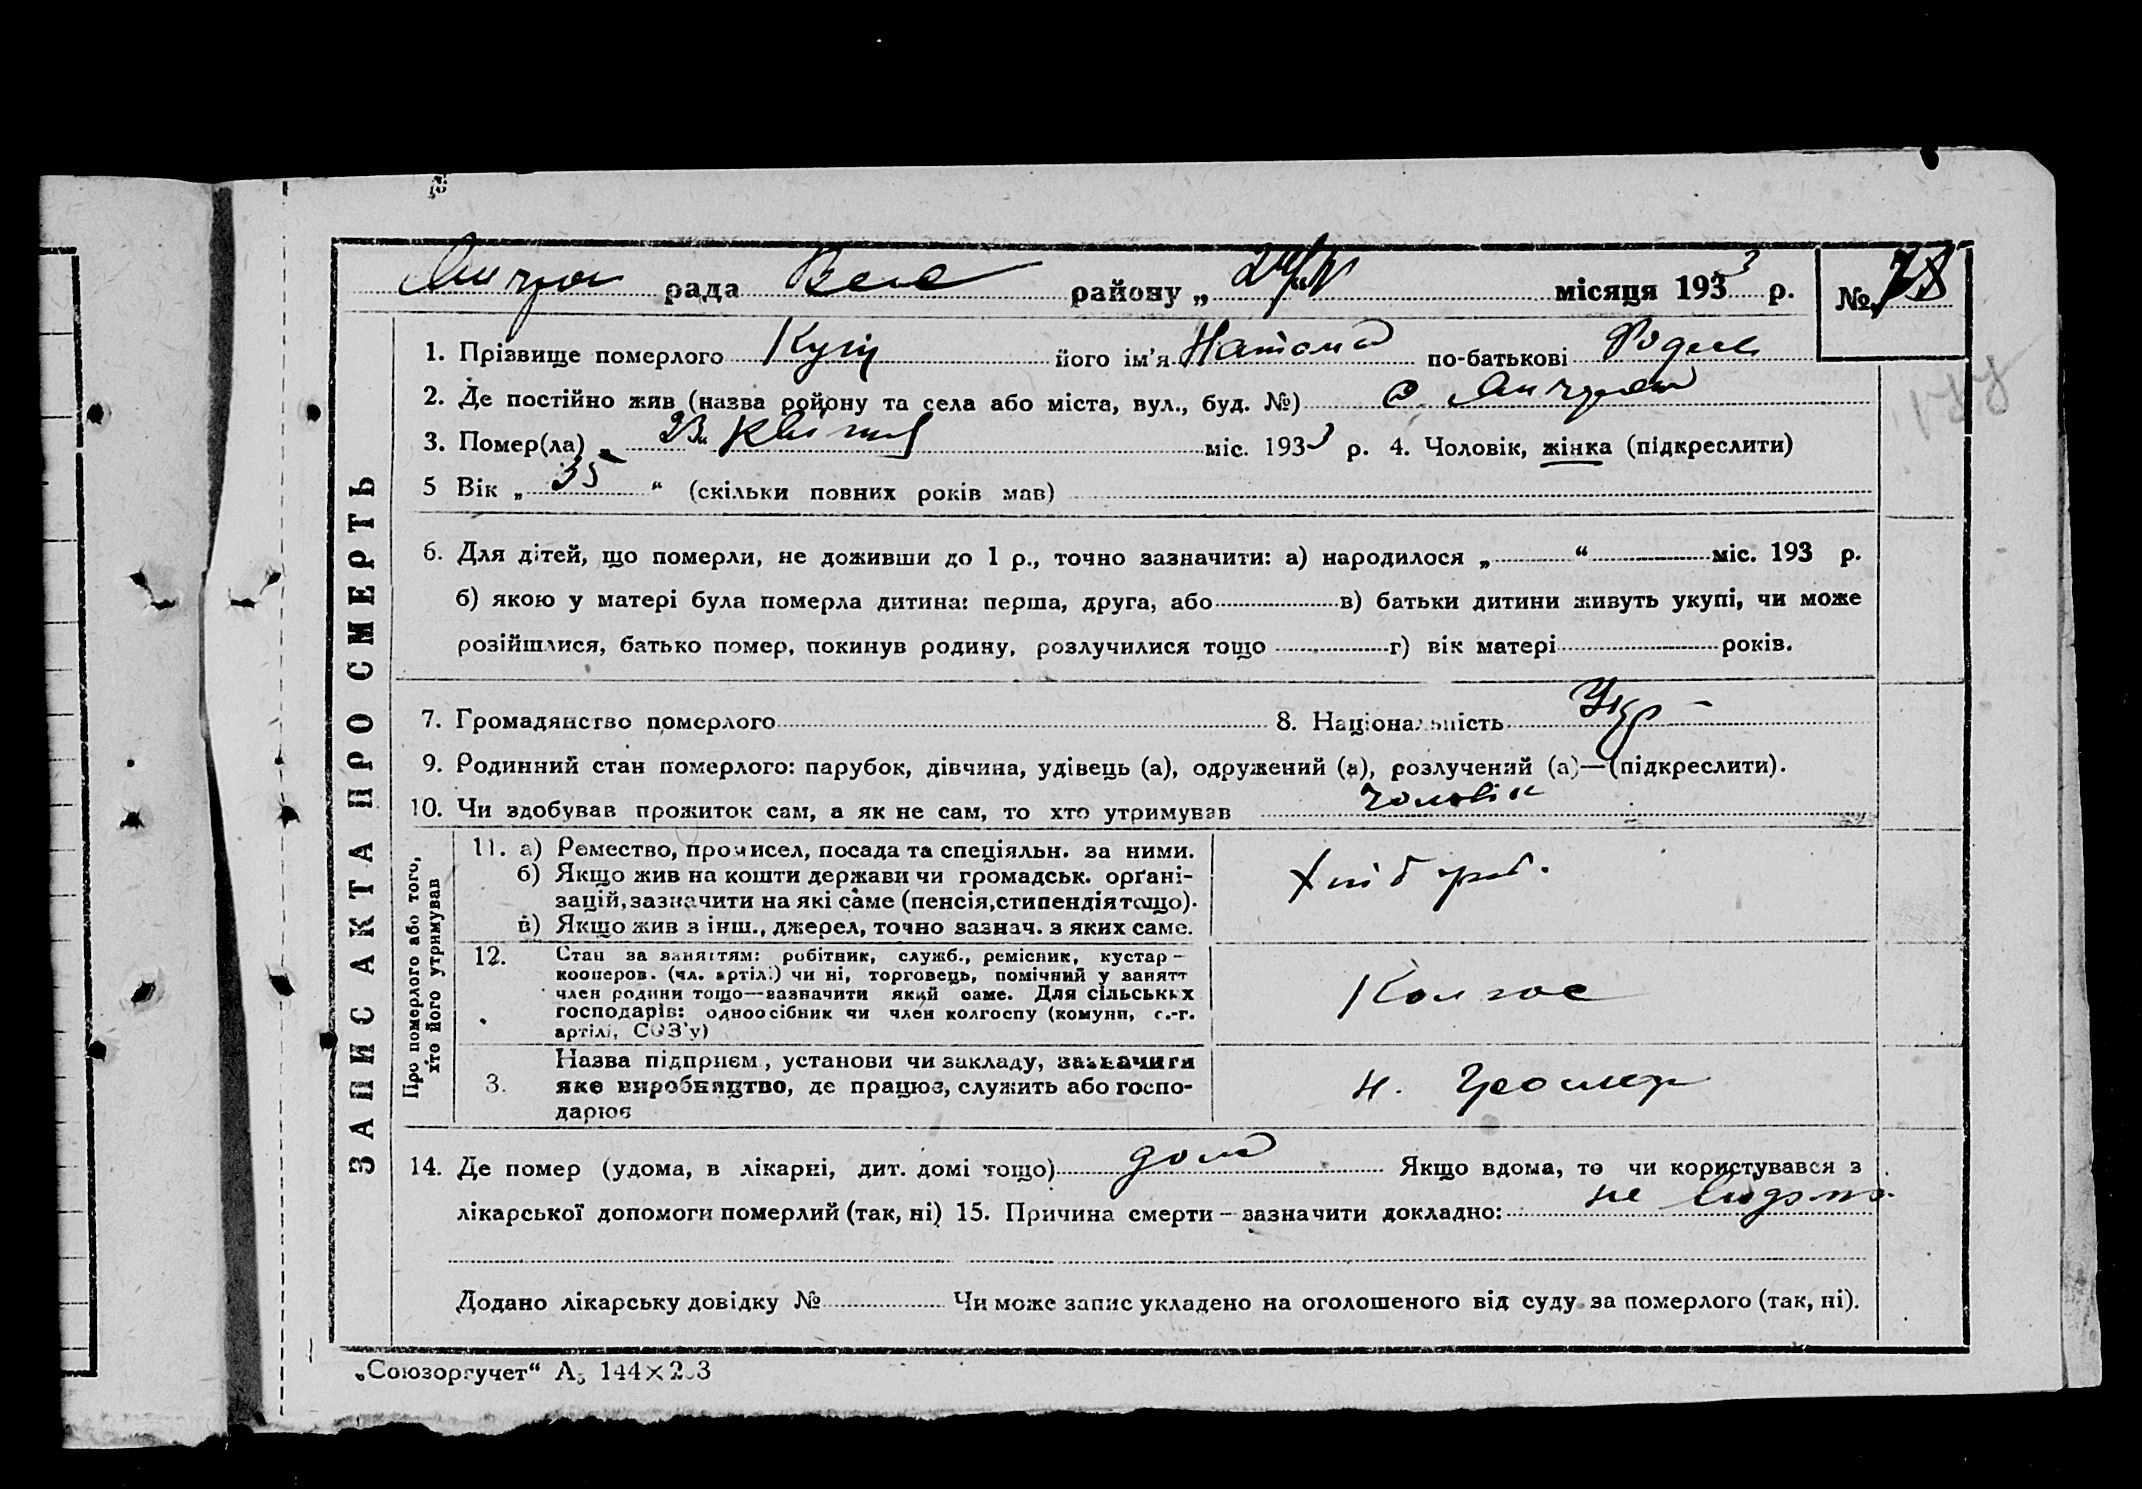 рада району „ 24/IV місяця 1933 р. № 78
1. Прізвище померлого його ім'я по-батькові
2. Де постійно жив (назва району та села або міста, вул., буд. №) с
3. Помер(ла) „23“ квітня міс. 1933 р. 4. Чоловік, жінка (підкреслити)
5 Вік „ 35 “ (скільки повних років мав)
6. Для дітей, що померли, не доживши до 1 р., точно зазначити: а) народилося „ “ міс. 193 р.
б) якою у матері була померла дитина: перша, друга, або в) батьки дитини живуть укупі, чи може
розійшлися, батько помер, покинув родину, розлучилися тощо г) вік матері років.
7. Громадянство померлого 8. Національність Укр
9. Родинний стан померлого: парубок, дівчина, удівець (а), одружений (а), розлучений (а)—(підкреслити).
10. Чи здобував прожиток сам, а як не сам, то хто утримував чоловік
ЗАПИС АКТА ПРО СМЕРТЬ
Про померлого або того, хто його утримував
11. а) Ремество, промисел, посада та спеціяльн. за ними.
б) Якщо жив на кошти держави чи громадськ. органі-
зацій, зазначити на які саме (пенсія, стипендія тощо).
в) Якщо жив з інш., джерел, точно зазнач. з яких саме.
Хліб роб.
12. Стан за заняттям: робітник, служб., ремісник, кустар —
кооперов. (чл. артіл.) чи ні, торговець, помічний у занятт
член родини тощо—зазначити який саме. Для сільських
господарів: одноосібник чи член колгоспу (комуни, с.-г.
артілі, СОЗ'у)
Колгос
Назва підприєм, установи чи закладу, зазначити
3. яке виробництво, де працює, служить або госпо-
дарює
14. Де помер (удома, в лікарні, дит. домі тощо) дома Якщо вдома, то чи користувався з
лікарської допомоги померлий (так, ні) 15. Причина смерти — зазначити докладно: не відомо
Додано лікарську довідку № Чи може запис укладено на оголошеного від суду за померлого (так, ні).
„Союзоргучет“ А₅ 144×203